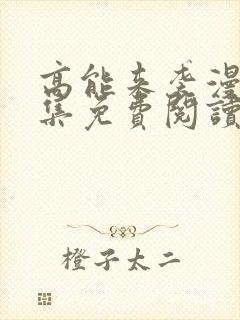 高能来袭漫
集免費閱讀
橙子太二